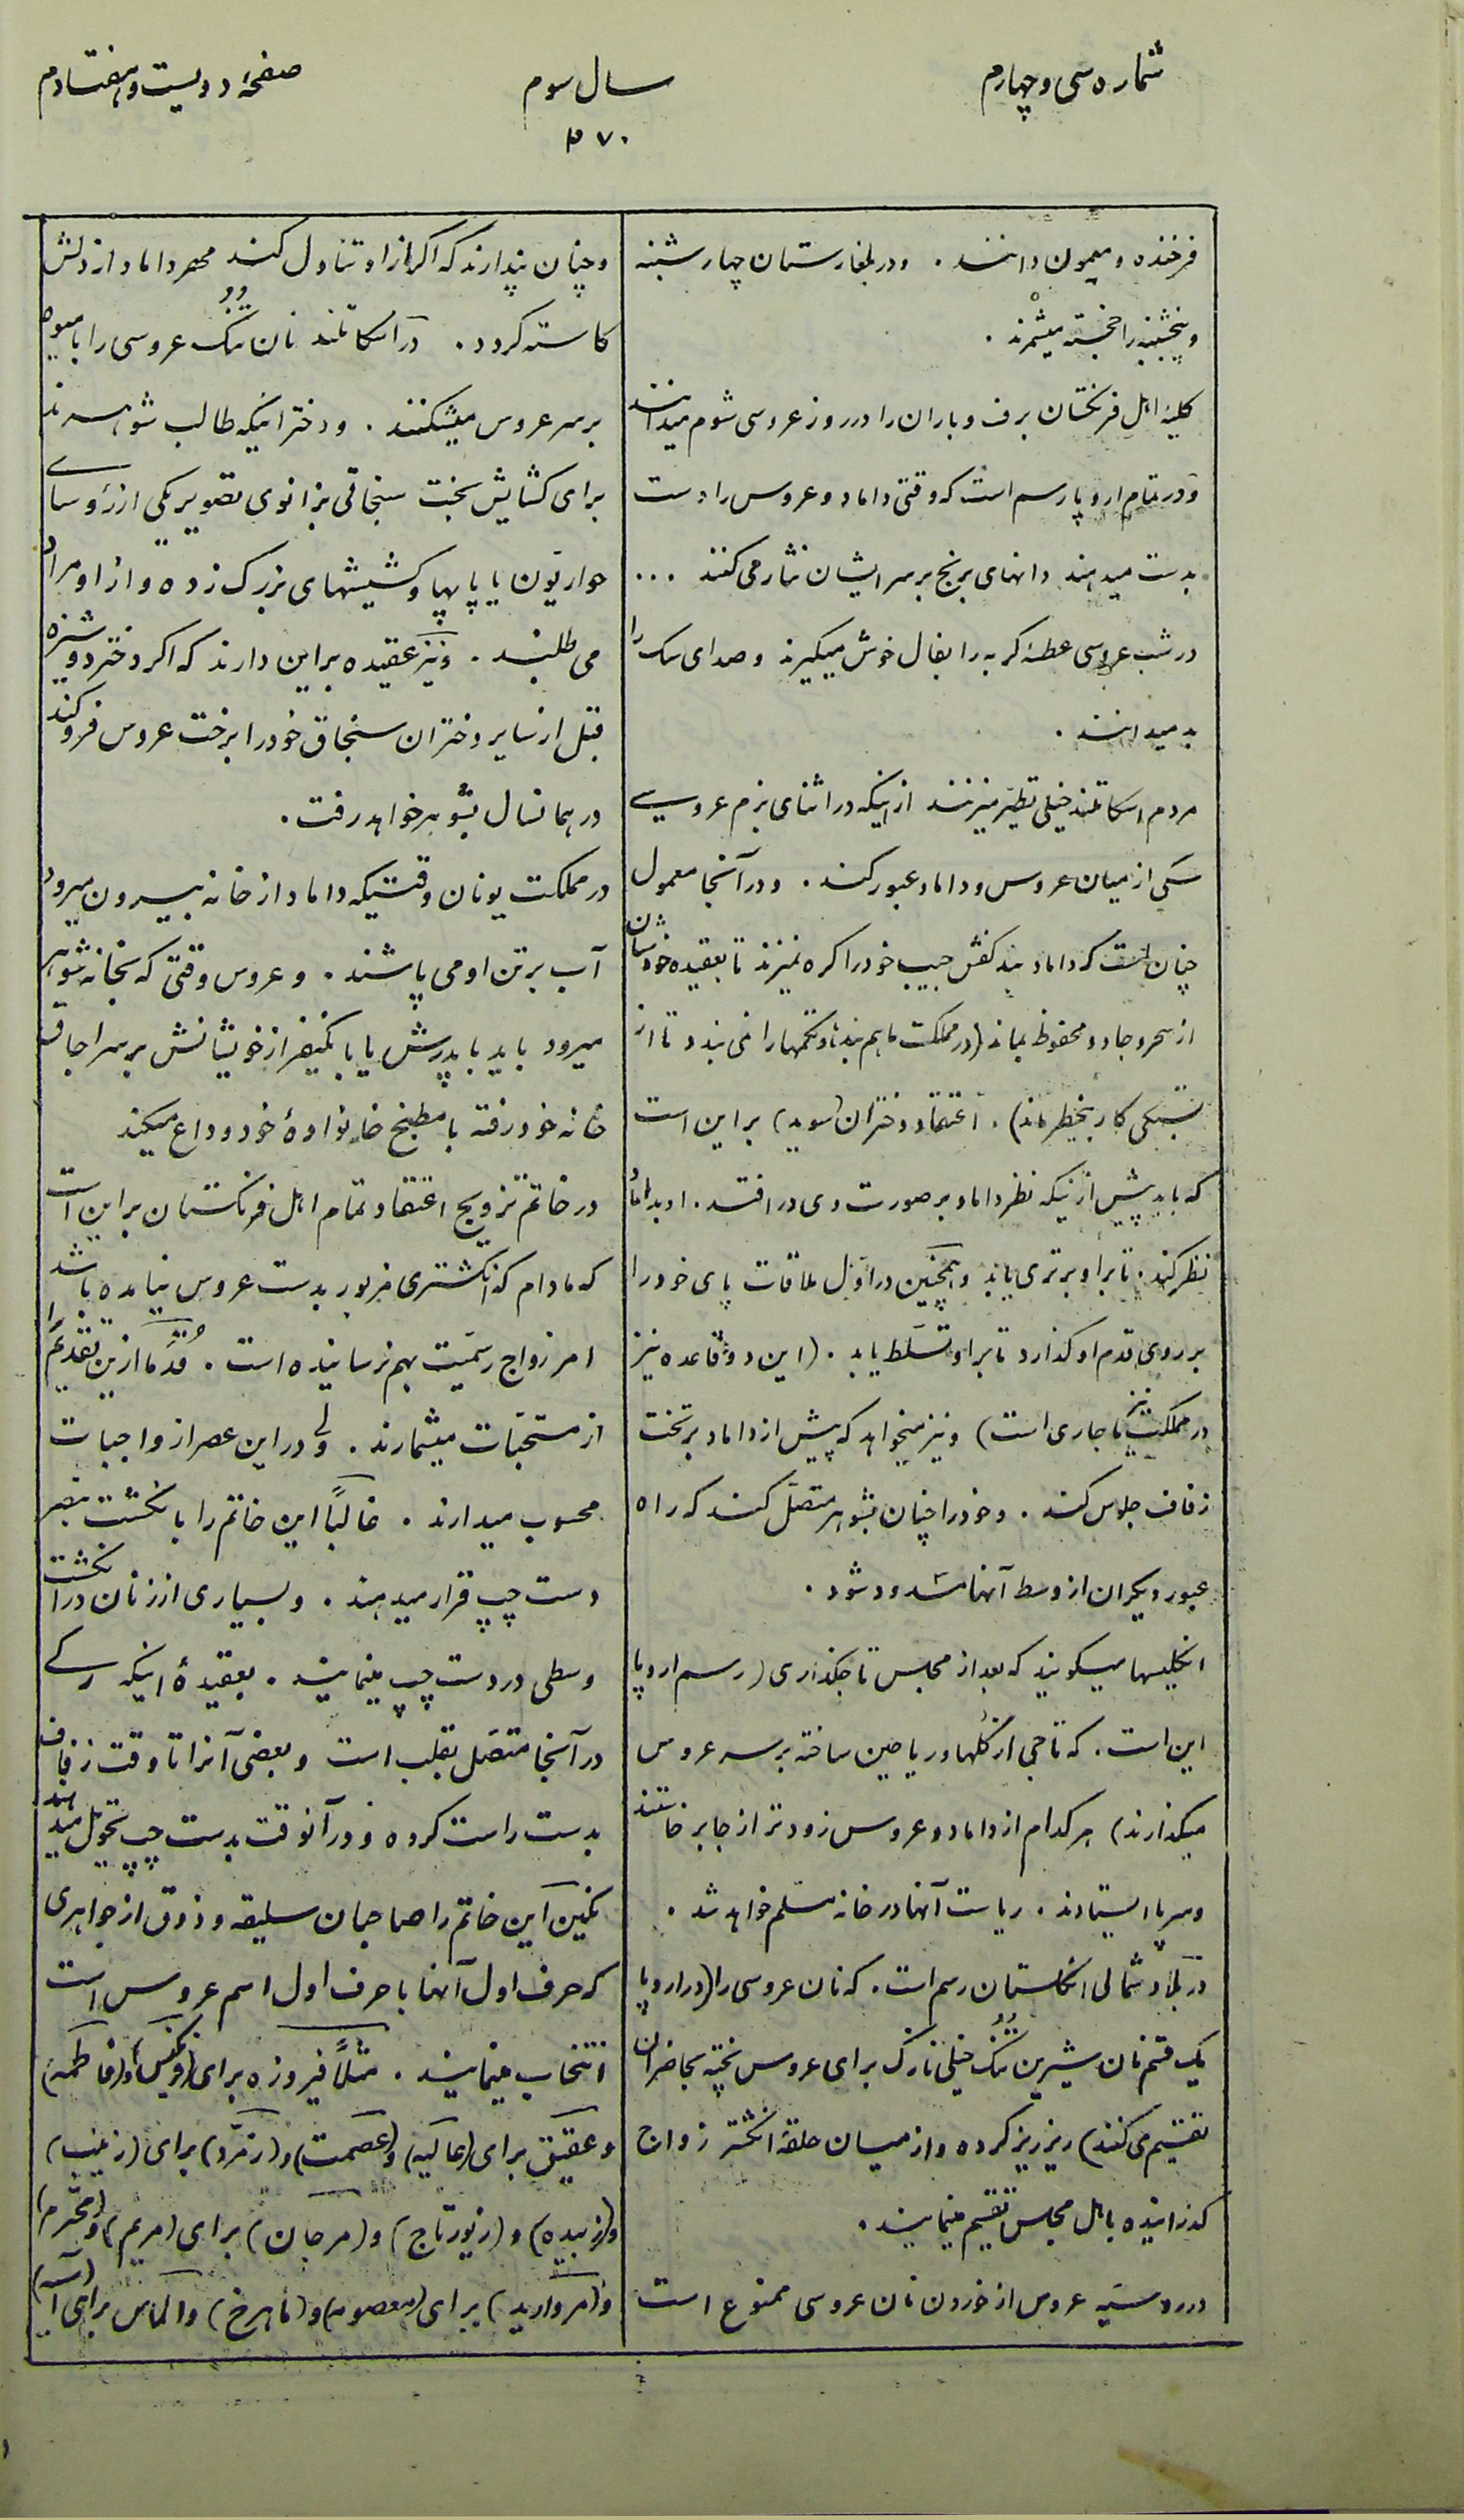 شماره سی و چهارم
سال سوم
صفحهٔ دویست و هفتادم
۲۷۰
فرخنده و میمون دانند . و در بلغارستان چهارشنبه
و پنجشنبه را خجسته میشمرند .
کلیهٔ اهل فرنگستان برف و باران را در روز عروسی شوم میدانند
و در تمام اروپا رسم است که وقتی داماد و عروس را دست
بدست میدهند دانهای برنج بر سر ایشان نثار می کنند ...
در شب عروسی عطسهٔ گربه را بفال خوش میگیرند و صدای سگ را
بد میدانند .
مردم اسکاتلند خیلی تطیّر میزنند از اینکه در اثنای بزم عروسی
سگی از میان عروس و داماد عبور کند . و در آنجا معمول
چنان است که داماد بند کفش چپ خود را گره نمیزند تا بعقیده خودشان
از سحر و جادو محفوظ بماند (در مملکت ما هم بندها و تکمها را نمی بندد تا از
بستگی کار بیخطر ماند) . اعتقاد دختران (سوید) بر این است
که باید پیش از نیکه نظر داماد بر صورت وی در افتد . او بداماد
نظر کند . تا بر او برتری یابد و همچنین در اوّل ملاقات پای خود را
بر روی قدم او گذارد تا بر او تسلّط یابد . (این دو قاعده نیز
در مملکت ما نیز جاری است) و نیز میخواهد که پیش از داماد بر تخت
زفاف جلوس کند . و خود را چنان بشوهر متصّل کند که راه
عبور دیگران از وسط آنها مسدود شود .
انگلیسها میگویند که بعد از مجلس تاجگذاری (رسم اروپا
این است . که تاجی از گلها و ریاحین ساخته بر سر عروس
میگذارند) هر کدام از داماد و عروس زودتر از جا برخاستند
و سر پا ایستادند . ریاست آنها در خانه مسلّم خواهد شد .
در بلاد شمالی انگلستان رسم است . که نان عروسی را (در اروپا
یک قسم نان شیرین تُنُک خیلی نازک برای عروس پخته بحاضران
تقسیم می کنند) ریز ریز کرده و از میان حلقهٔ انگشتر زواج
گذرانیده باهل مجلس تقسیم مینمایند .
در روسیّه عروس از خوردن نان عروسی ممنوع است
و چنان پندارند که اگر از او تناول کند مهر داماد از دلش
کاسته گردد . در آسکاتلند نان تُنُک عروسی را با میوه
بر سر عروس میشکنند . و دخترانیکه طالب شوهرند
برای گشایش بخت سنجاقی بزانوی تصویر یکی از رؤسای
حواریّون یا پاپها و کشیشهای بزرگ زده و از او مراد
می طلبند . و نیز عقیده بر این دارند که اگر دختر دوشیزه
قبل از سایر دختران سنجاق خود را برخت عروس فرو کند
در همانسال بشوهر خواهد رفت .
در مملکت یونان وقتیکه داماد از خانه بیرون میرود
آب بر تن او می پاشند . و عروس وقتی که بخانه شوهر
میرود باید با پدرش یا با یکنفر از خویشانش بر سر اجاق
خانه خود رفته با مطبخ خانوادهٔ خود وداع میکند
در خاتم تزویج اعتقاد تمام اهل فرنگستان بر این است
که مادام که انگشتری مزبور بدست عروس نیامده باشد
امر زواج رسمیّت بهم نرسانیده است . قُدَما ازین تقدیم را
از مستحبّات میشمارند . ولی در این عصر از واجبات
محسوب میدارند . غالباً این خاتم را بانگشت بنصر
دست چپ قرار میدهند . و بسیاری از زنان در انگشت
وسطی در دست چپ مینمایند . بعقیدهٔ اینکه رگی
در آنجا متصّل بقلب است و بعضی آنرا تا وقت زفاف
بدست راست کرده و در آنوقت بدست چپ تحویل میدهند
نگین این خاتم را صاحبان سلیقه و ذوق از جواهری
که حرف اول آنها با حرف اول اسم عروس است
انتخاب مینمایند . مثلاً فیروزه برای (فرنگیس) و (فاطمه)
و عقیق برای (عالیه) و (عصمت) و (زمرّد) برای (زینب)
و (زبیده) و (زیور تاج) و (مرجان) برای (مریم) و (محترم)
و (مروارید) برای (معصومه) و (ماهرخ) و الماس برای (آسیه)